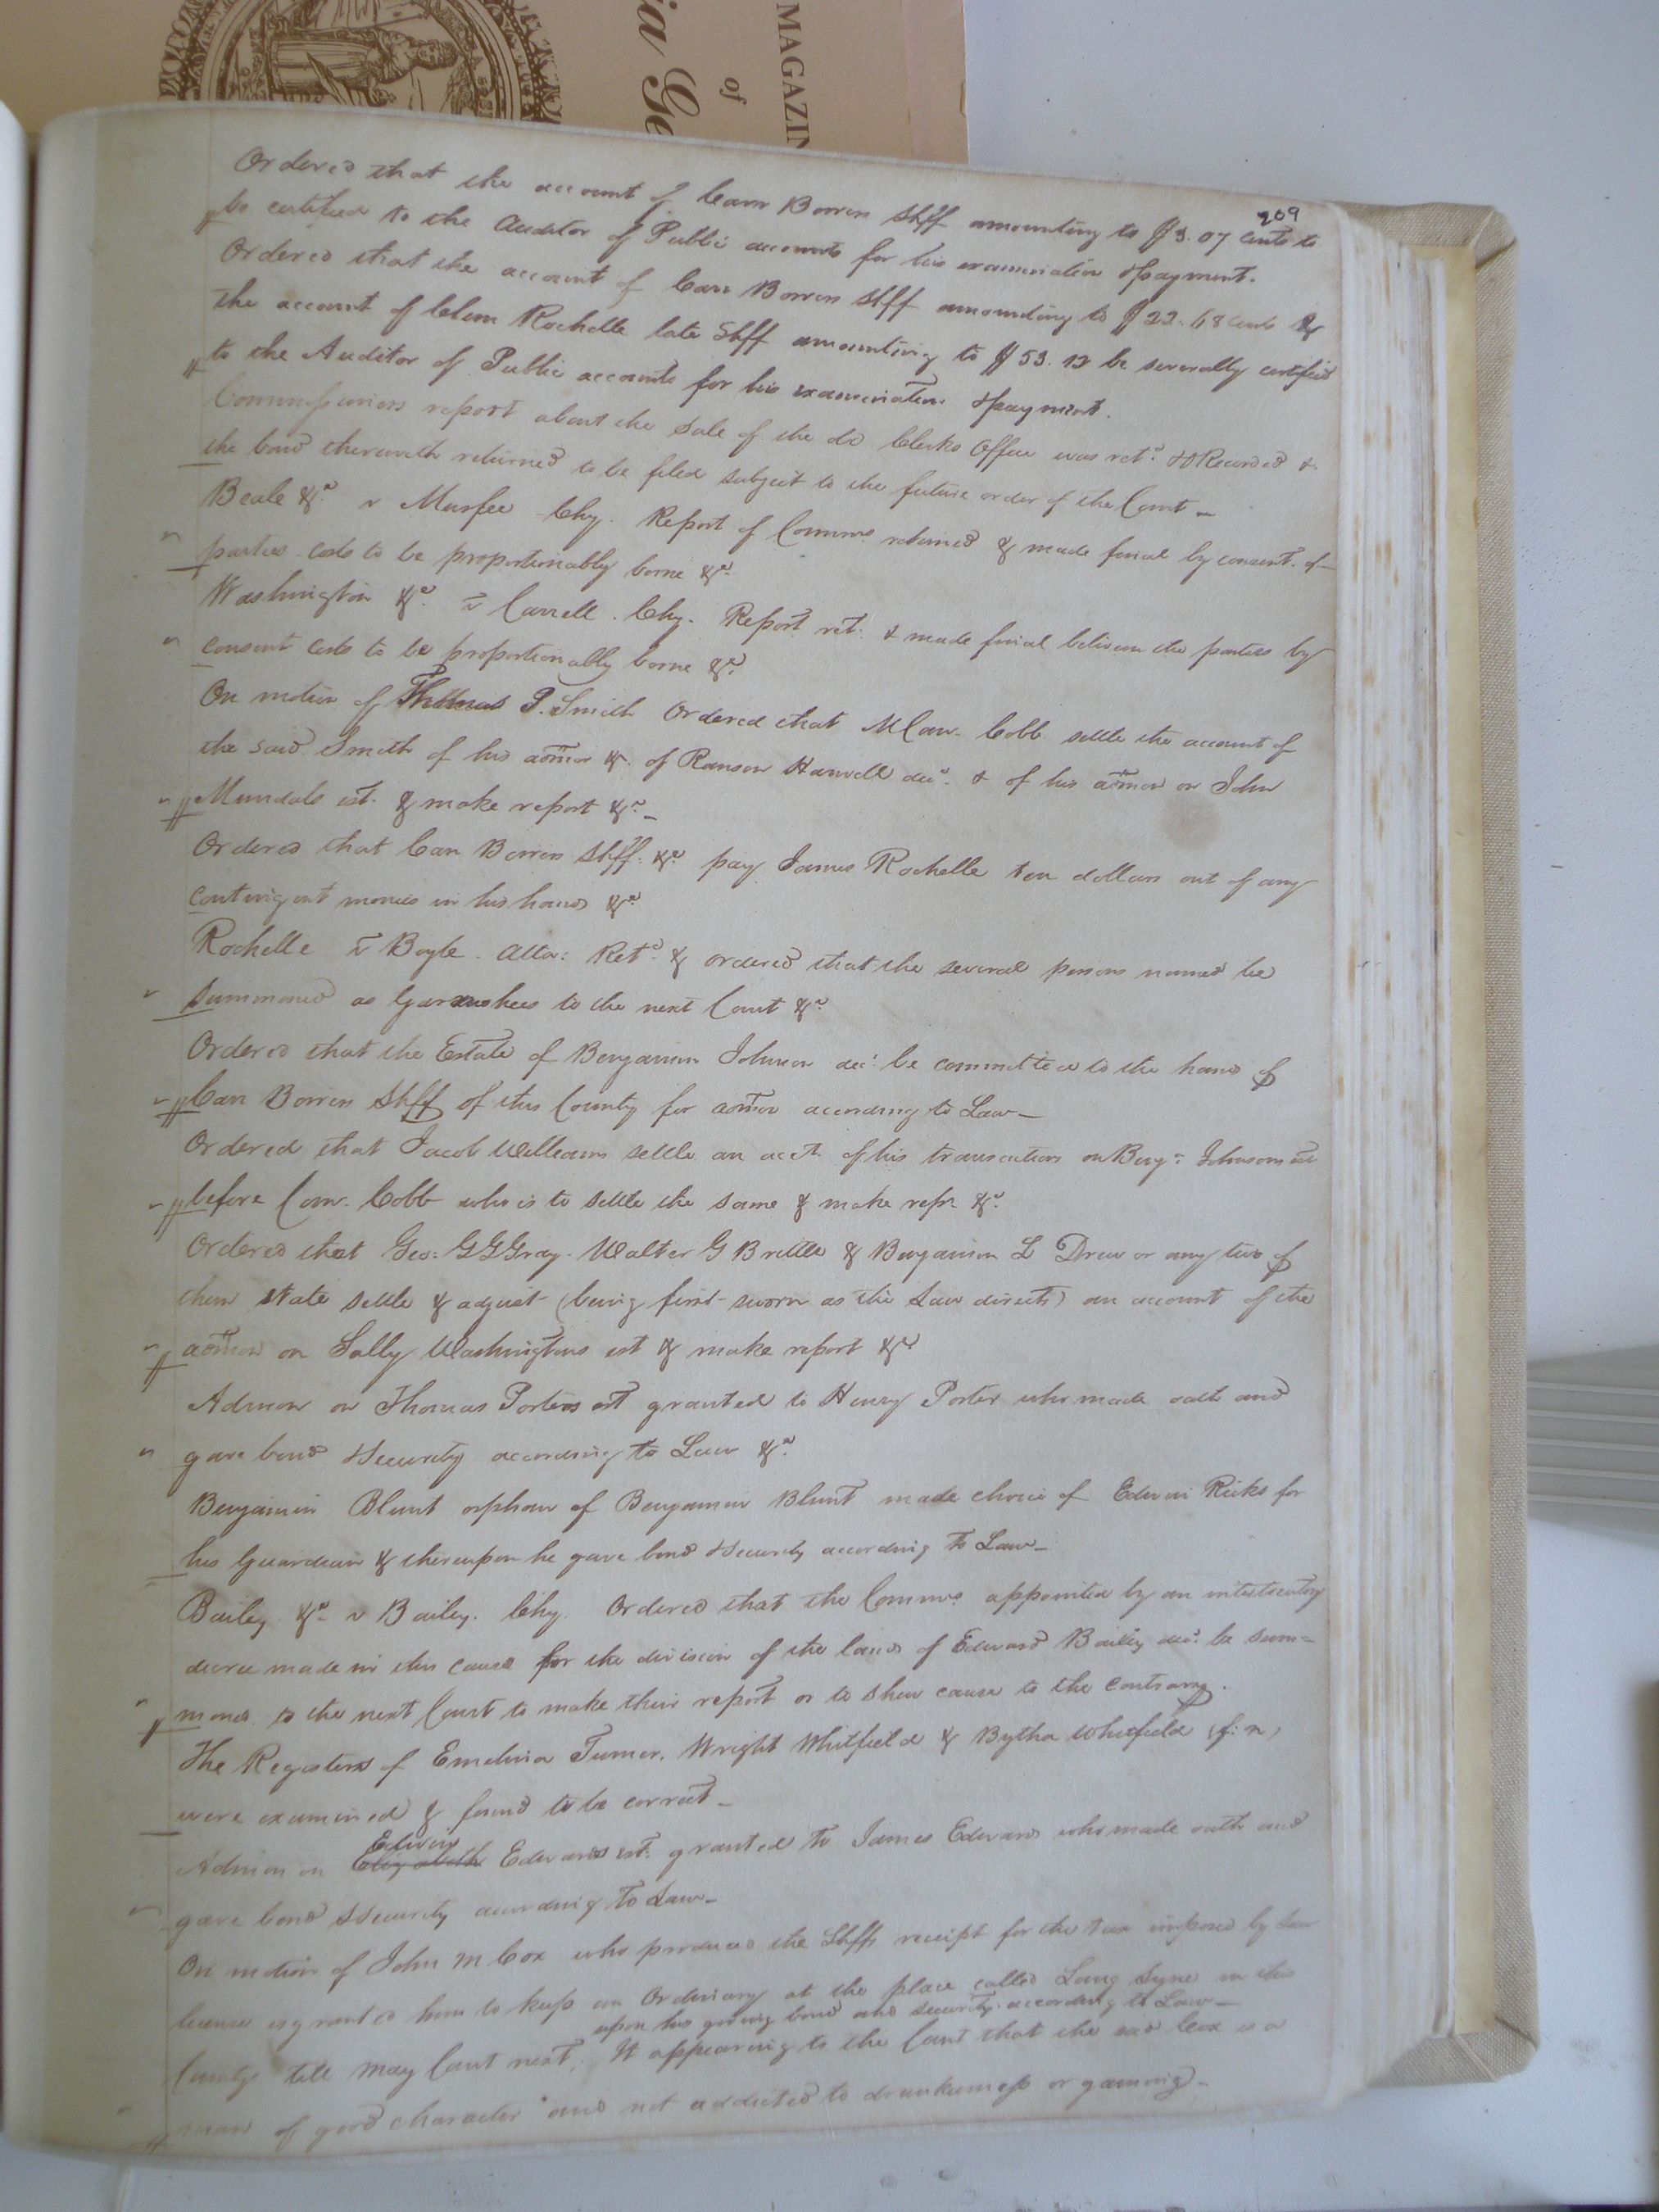 MAGAZIN
of
ia Ge
209
Ordered that the account of Carr Bowers Shff amounting to $3.07 cents to
be certified to the Auditor of Public accounts for his examination & payment.
Ordered that the account of Carr Bowers Shff amounting to $22.68 cents &
the account of Clem Rochelle late Shff amounting to $53.13 be severally certified
to the Auditor of Public accounts for his examination & payment.
Commissioners report about the Sale of the old Clerks Office was retd. & Recorded &
the bond therewith returned to be filed subject to the future order of the Court —
Beale &c. v Murfee Chy. Report of Commrs. returned & made final by consent of
parties costs to be proportionably borne &c.
Washington &c. v Carrell. Chy. Report ret. & made final between the parties by
consent costs to be proportionally borne &c.
On motion of Thomas P. Smith Ordered that Com. Cobb settle the account of
the said Smith of his admon &c. of Ranson Harwell decd. & of his admon on John
Mundals est. & make report &c. —
Ordered that Carr Bowers Shff. &c. pay James Rochelle ten dollars out of any
contingent monies in his hands &c.
Rochelle v Boyle. Atta: Retd. & ordered that the several persons named be
summoned as Garnushees to the next Court &c.
Ordered that the Estate of Benjamin Johnson decd. be committed to the hands of
Carr Bowers Shff of this County for admon according to Law —
Ordered that Jacob Williams settle an acct. of his transactions on Benjn. Johnsons est
before Com. Cobb who is to settle the same & make rept. &c.
Ordered that Geo: G G Gray. Walter G Brittle & Benjamin L Drew or any two of
them state settle & adjust (being first sworn as the Law directs) an account of the
admon on Sally Washingtons est & make report &c
Admon on Thomas Porters est granted to Henry Porter who made oath and
gave bond & Security according to Law &c.
Benjamin Blunt orphan of Benjamin Blunt made choice of Edwin Ricks for
his Guardian & thereupon he gave bond & Security according to Law —
Bailey &c. v Bailey. Chy. Ordered that the Commrs. appointed by an interlocutory
decree made in this cause for the division of the lands of Edward Bailey decd. be sum=
moned to the next Court to make their report or to shew cause to the contrary.
The Registers of Emelina Turner, Wright Whitfield & Bytha Whitfield (f: n)
were examined & found to be correct —
Admon on Elizabeth Edwin Edwards est. granted to James Edwards who made oath and
gave bond & Security according to Law —
On motion of John M Cox who produced the Shffs receipt for the tax imposed by Law
license is granted him to keep an Ordinary at the place called Lang Syne in this
upon his giving bond and security according to Law —
County till May Court next, It appearing to the Court that the said Cox is a
man of good character and not addicted to drunkenness or gaming —